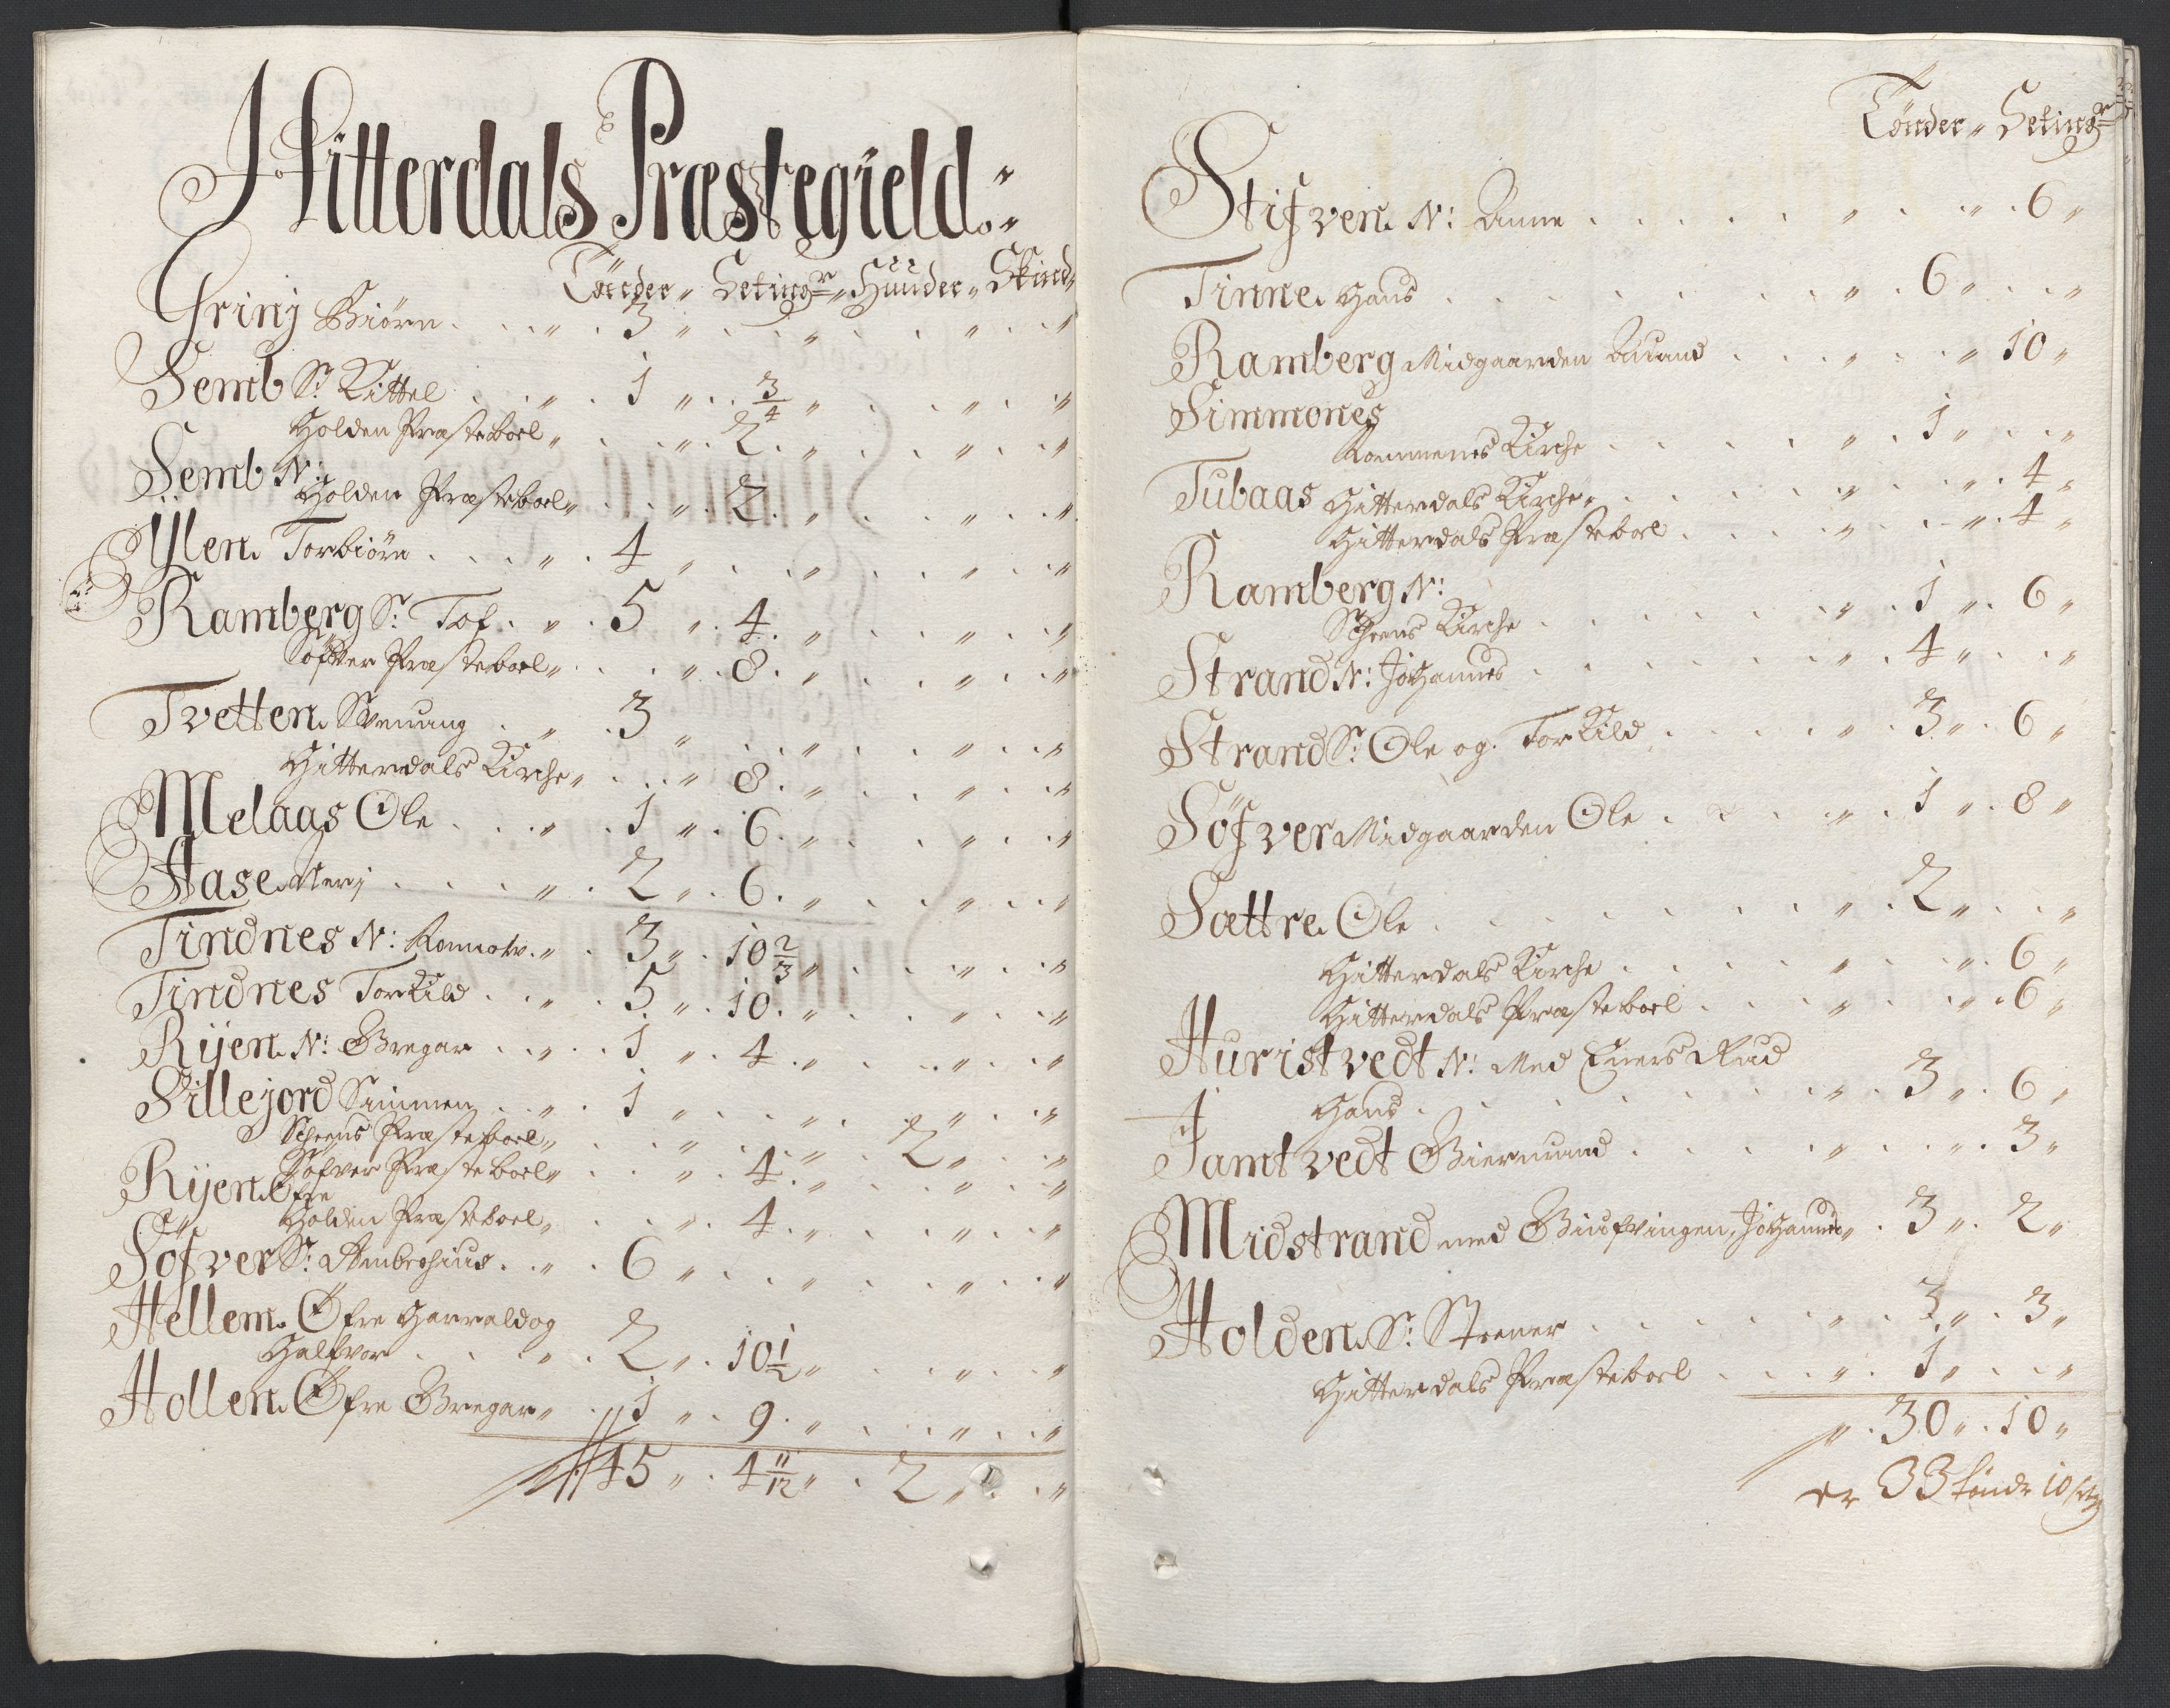 Hitterdals Præstegield
Tönder Setingr Hüüder Skind
Grinj Biörn 3
Semb Sr Kittel 1 3/4
Holden Præsteboel 2
Semb N:
Holden Præsteboel 2
Ylen Torbiörn 4
Ramberg Sr Tof 5 4
Söfver Præsteboel 8
Tvetten Svenung 3
Hitterdals Kirche 8
Melaas Ole 1 6
Aase 2 6
Tindnes N: 3 10 2/3
Tindnes Torkild 5 10
Rijen N: Gregar 1 4
Sillejord Simmen 1
Scheens Præsteboel 2
Söfver Præsteboel 4
Rijen Øfre
Holden Præsteboel 4
Söfver Sr Ambrosius 6
Hellem Øfre Harrald og
Halfvor 2 10 1/2
Hollen Øfre Gregar 1 9
45 4 11/12 2
Tönder Setingr
Stifven N: Anne 6
Tinne Hans 6
Ramberg Midgaarden Amund 10
Simmones
Rommenes Kirche 1
Tubaas Hitterdals Kirche 4
Hitterdals Præsteboel 4
Ramberg N:
Scheens Kirche 1 6
Strand N: Johannes 4
Strand Sr Ole og Torkild 3 6
Söfver Midgaarden Ole 1 8
Sættre Ole 2
Hitterdals Kirche 6
Hitterdals Præsteboel 6
Huristvedt N: Med Eners Rud
Hans 3 6
Jamtvedt Giermund 3
Midstrand med Johannes 3 2
Holden Sr Steener 3 3
Hitterdals Præsteboel 1
30 10
er 33 tönde 10 setg